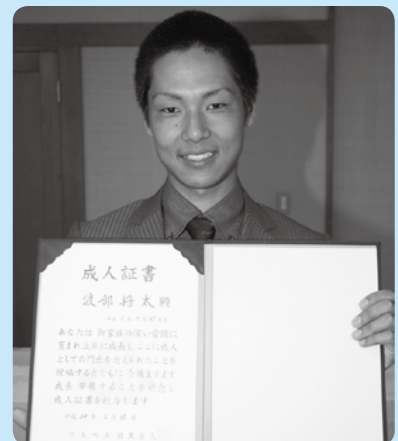 成人証書
渡部将太殿
あなたは御家族の深い愛情に
育まれ立派に成長しここに成人
としての門出を迎えられたことを
祝福するとともに今後ますます
成長発展することを祈念し
成人証書を授与します